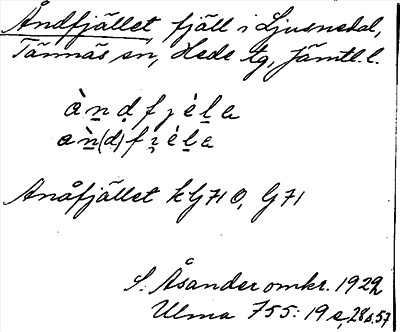 Åndfjället fjäll i Ljusnedal,
Tännäs sn, Hede tg, Jämtl. l.
àn̲ḍfjèl̲a
àn̲(d)fjèl̲a
Anåfjället k G71 O, G71
S. Åsander omkr. 1922
Ulma 755: 19 s, 28 s. 57